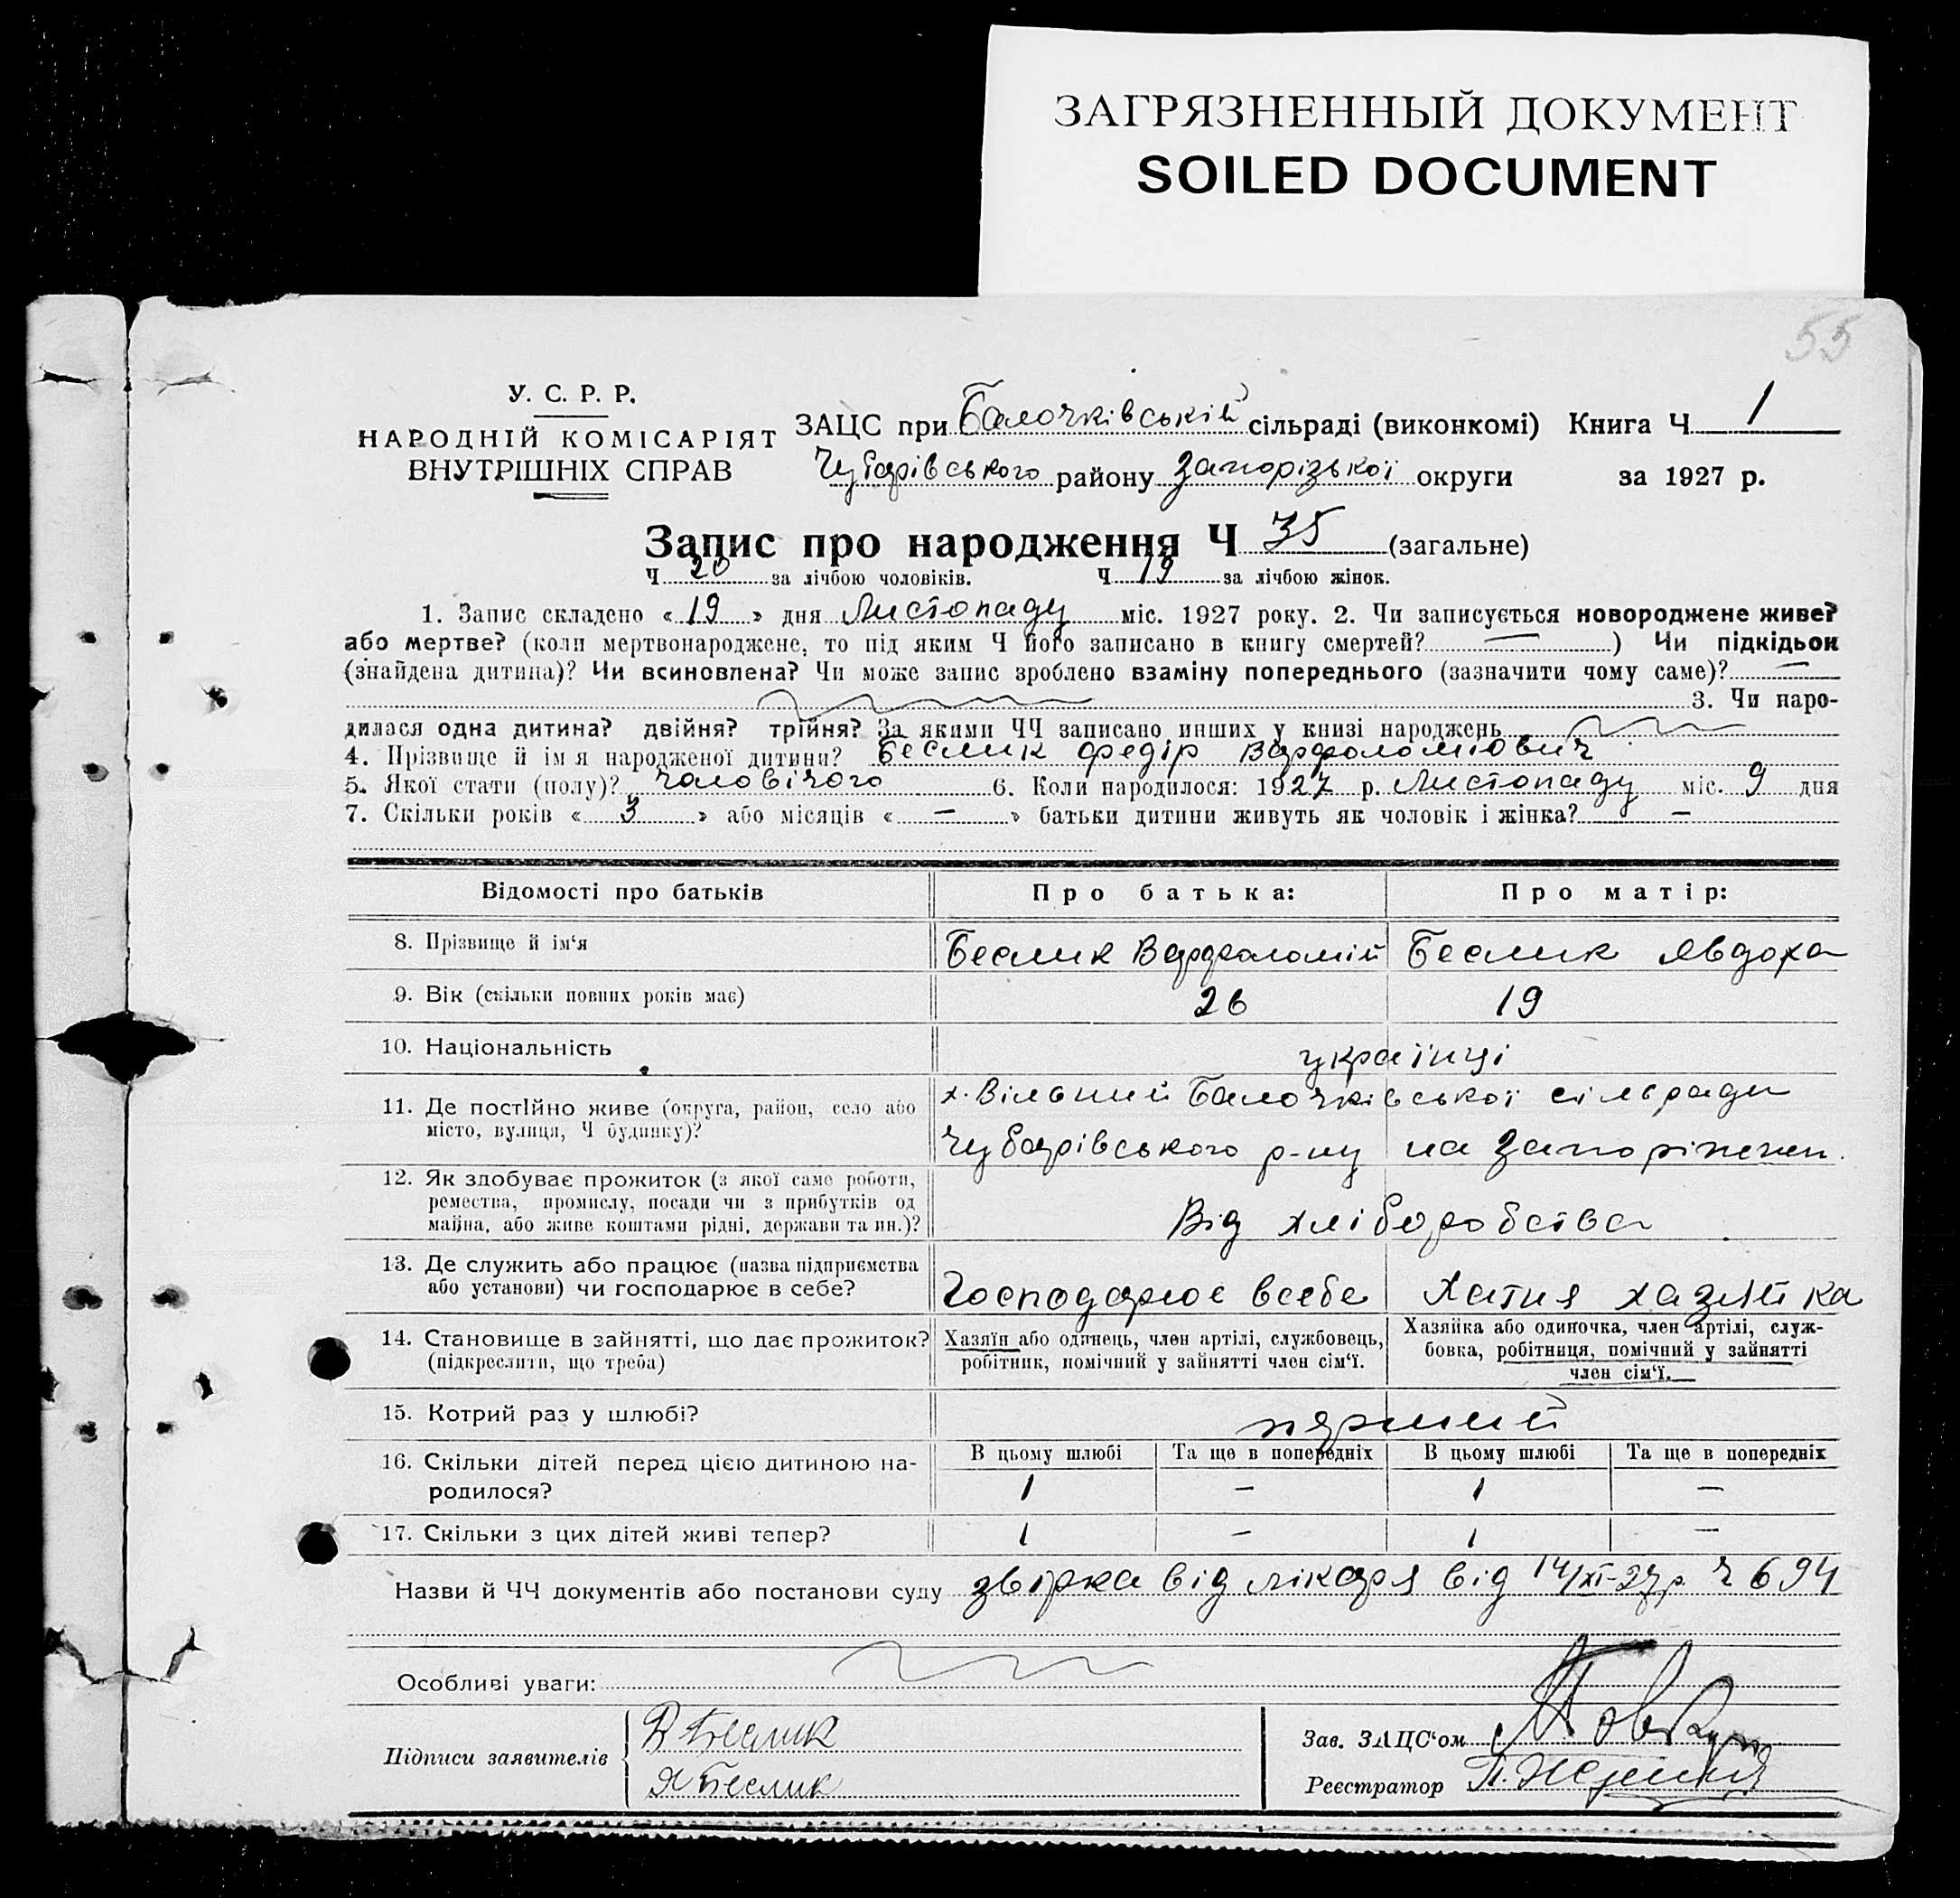 ЗАГРЯЗНЕННЫЙ ДОКУМЕНТ
SOILED DOCUMENT
55
У. С. Р. Р.
НАРОДНІЙ КОМІСАРІЯТ
ВНУТРІШНІХ СПРАВ
ЗАЦС при Балочківській сільраді (виконкомі) Книга Ч 1
Чубарівського району Запорізької округи за 1927 р.
Запис про народження Ч 35 (загальне)
Ч 20 за лічбою чоловіків. Ч 19 за лічбою жінок.
1. Запис складено « 19 » дня Листопаду міс. 1927 року. 2. Чи записується новороджене живе?
або мертве? (коли мертвонароджене, то під яким Ч його записано в книгу смертей? — ) Чи підкідьок
(знайдена дитина)? Чи всиновлена? Чи може запис зроблено взаміну попереднього (зазначити чому саме)? —
3. Чи наро-
дилася одна дитина? двійня? трійня? За якими ЧЧ записано инших у книзі народжень
4. Прізвище й ім'я народженої дитини? Беслик Федір Варфоломіович
5. Якої стати (полу)? чоловічого 6. Коли народилося: 1927 р. Листопаду міс. 9 дня
7. Скільки років « 3 » або місяців « — » батьки дитини живуть як чоловік і жінка? —
Відомості про батьків Про батька: Про матір:
8. Прізвище й ім'я Беслик Варфоломій Беслик Явдоха
9. Вік (скільки повних років має) 26 19
10. Національність українці
11. Де постійно живе (округа, район, село або
місто, вулиця, Ч будинку)?
х. Вільний Балочківської сільради
Чубарівського р-ну на Запоріжжен.
12. Як здобуває прожиток (з якої саме роботи,
ремества, промислу, посади чи з прибутків од
майна, або живе коштами рідні, держави та ин.)?
Від хліборобства
13. Де служить або працює (назва підприємства
або установи) чи господарює в себе?
Господарює всебе Хатня хазяйка
14. Становище в зайнятті, що дає прожиток?
(підкреслити, що треба)
Хазяїн або одинець, член артілі, службовець,
робітник, помічний у зайнятті член сім'ї.
Хазяйка або одиночка, член артілі, служ-
бовка, робітниця, помічний у зайнятті
член сім'ї.
15. Котрий раз у шлюбі? перший
В цьому шлюбі Та ще в попередніх В цьому шлюбі Та ще в попередніх
16. Скільки дітей перед цією дитиною на-
родилося?
1 — 1 —
17. Скільки з цих дітей живі тепер? 1 — 1 —
Назви й ЧЧ документів або постанови суду звірка від лікаря від 14/XI-27р. Ч 694
Особливі уваги:
Підписи заявителів
В Беслик
Я Беслик
Зав. ЗАЦС'ом
Реєстратор